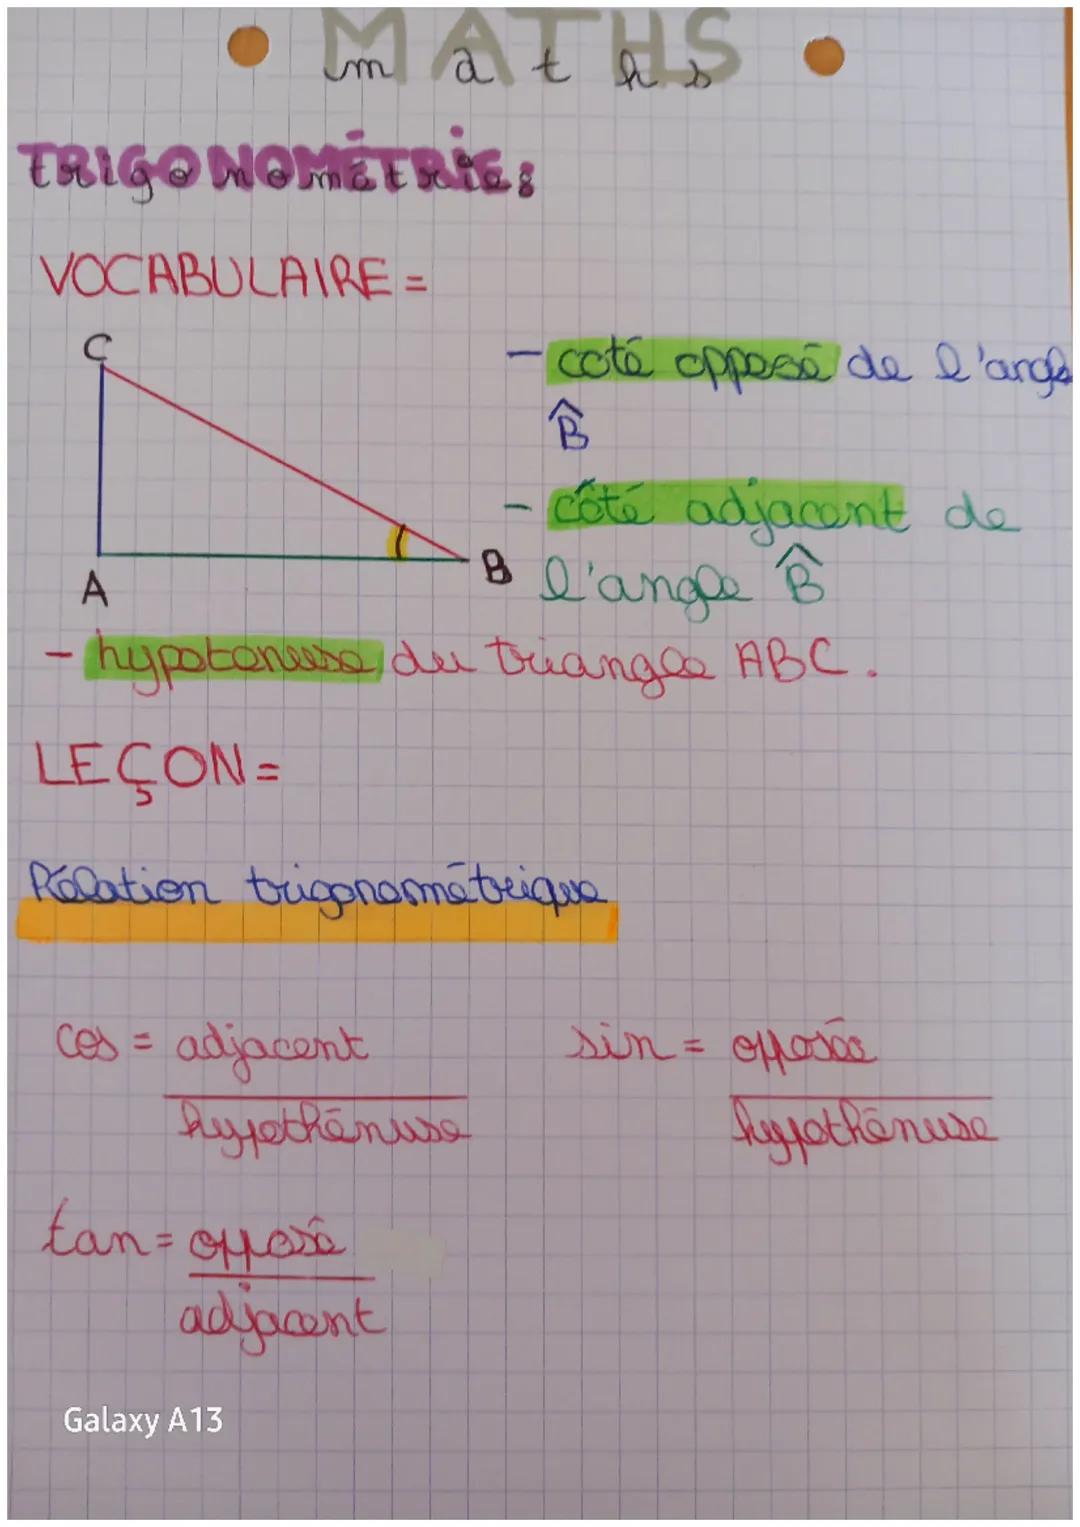 MATHS
maths
TRIGONOMÉTRIE:
VOCABULAIRE =
C
- coté opposé de l'angle
B̂
- côté adjacent de
B
l'angle B̂
A
- hypotenuse du triangle ABC.
LEÇON =
Rélation trigonométrique
cos = adjacent
hypothénuse
sin = opposée
hypothénuse
tan = opposé
adjacent
Galaxy A13